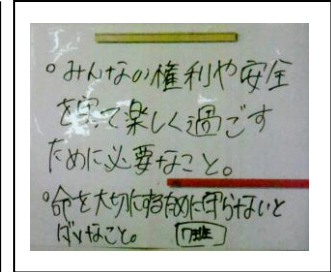 。みんなの権利や安全
を守って楽しく過ごす
ために必要なこと。
。命を大切にするために守らないと
いけないこと。 7班